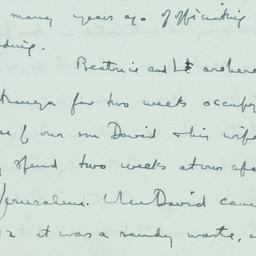 many years ago of officiating
Beatrice and I are here
for two weeks occupy
of our son David & his wife
spend two weeks at our
Jerusalem. When David came
it was a sandy waste, a